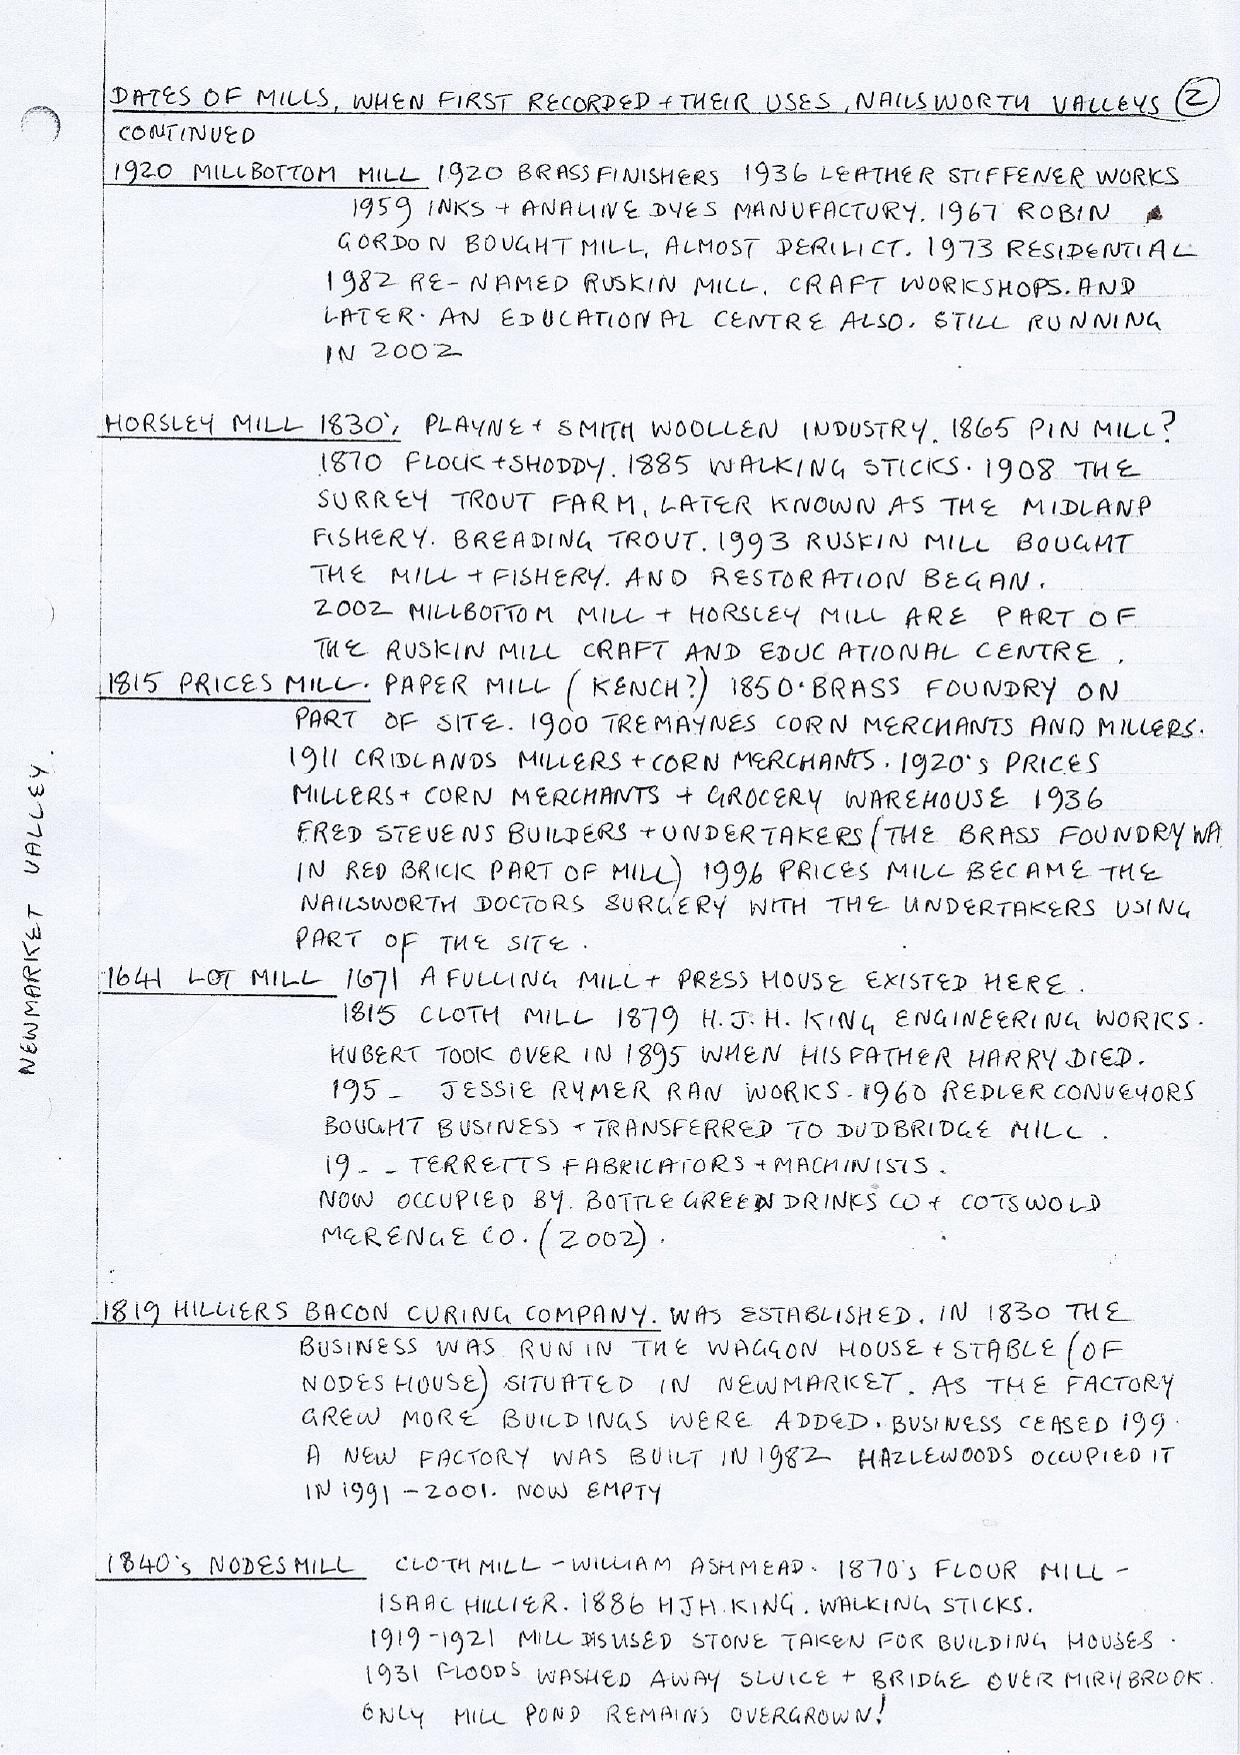 DATES OF MILLS, WHEN FIRST RECORDED + THEIR USES, NAILSWORTH VALLEYS 2
CONTINUED
1920 MILLBOTTOM MILL 1920 BRASSFINISHERS 1936 LEATHER STIFFENER WORKS
1959 INKS + ANALINE DYES MANUFACTURY. 1967 ROBIN
GORDON BOUGHT MILL, ALMOST DERILICT. 1973 RESIDENTIAL
1982 RE-NAMED RUSKIN MILL. CRAFT WORKSHOPS. AND
LATER. AN EDUCATIONAL CENTRE ALSO. STILL RUNNING
IN 2002
HORSLEY MILL 1830's PLAYNE + SMITH WOOLLEN INDUSTRY. 1865 PIN MILL?
1870 FLOCK + SHODDY. 1885 WALKING STICKS. 1908 THE
SURREY TROUT FARM, LATER KNOWN AS THE MIDLAND
FISHERY. BREADING TROUT. 1993 RUSKIN MILL BOUGHT
THE MILL + FISHERY. AND RESTORATION BEGAN.
2002 MILLBOTTOM MILL + HORSLEY MILL ARE PART OF
THE RUSKIN MILL CRAFT AND EDUCATIONAL CENTRE.
1815 PRICES MILL. PAPER MILL (KENCH?) 1850. BRASS FOUNDRY ON
PART OF SITE. 1900 TREMAYNES CORN MERCHANTS AND MILLERS.
1911 CRIDLANDS MILLERS + CORN MERCHANTS. 1920's PRICES
MILLERS + CORN MERCHANTS + GROCERY WAREHOUSE 1936
FRED STEVENS BUILDERS + UNDERTAKERS (THE BRASS FOUNDRY WA
IN RED BRICK PART OF MILL) 1996 PRICES MILL BECAME THE
NAILSWORTH DOCTORS SURGERY WITH THE UNDERTAKERS USING
PART OF THE SITE.
NEWMARKET VALLEY.
1641 LOT MILL 1671 A FULLING MILL + PRESS HOUSE EXISTED HERE.
1815 CLOTH MILL 1879 H.J.H. KING ENGINEERING WORKS.
HUBERT TOOK OVER IN 1895 WHEN HIS FATHER HARRY DIED.
195_ JESSIE RYMER RAN WORKS. 1960 REDLER CONVEYORS
BOUGHT BUSINESS + TRANSFERRED TO DUDBRIDGE MILL.
19_ _ TERRETTS FABRICATORS + MACHINISTS.
NOW OCCUPIED BY. BOTTLE GREEN DRINKS CO + COTSWOLD
MERENGE CO. (2002).
1819 HILLIERS BACON CURING COMPANY. WAS ESTABLISHED. IN 1830 THE
BUSINESS WAS RUN IN THE WAGGON HOUSE + STABLE (OF
NODES HOUSE) SITUATED IN NEWMARKET. AS THE FACTORY
GREW MORE BUILDINGS WERE ADDED. BUSINESS CEASED 199
A NEW FACTORY WAS BUILT IN 1982 HAZLEWOODS OCCUPIED IT
IN 1991 - 2001. NOW EMPTY
1840's NODES MILL CLOTH MILL - WILLIAM ASHMEAD. 1870's FLOUR MILL -
ISAAC HILLIER. 1886 HJH. KING. WALKING STICKS.
1919-1921 MILL DISUSED STONE TAKEN FOR BUILDING HOUSES.
1931 FLOODS WASHED AWAY SLUICE + BRIDGE OVER MIRYBROOK.
ONLY MILL POND REMAINS OVERGROWN!